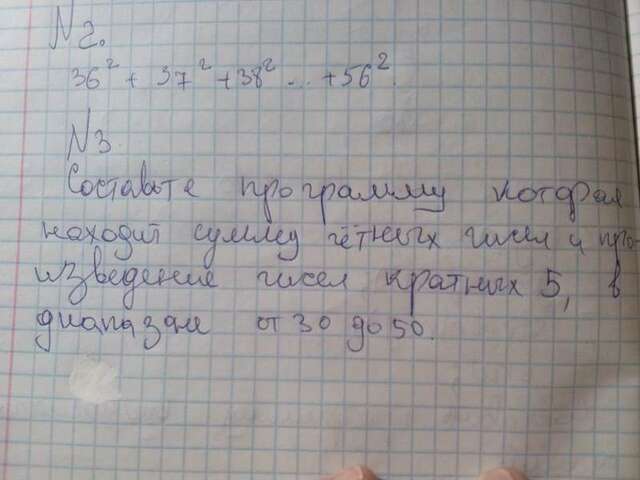 N2.
36² + 37² + 38² ... + 56².
N3
Составьте программу которая
находит сумму чётных чисел и про-
изведение чисел кратных 5, в
диапазоне от 30 до 50.